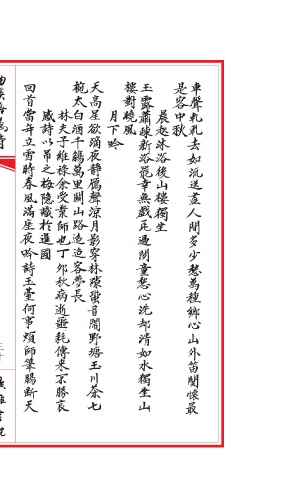 車聲軋軋去如流送盡人間多少愁萬種鄉心山外笛關懷最
是客中秋
晨起沐浴後山樓獨坐
玉露蕭疎新浴罷幸無戲乕過閒童愁心洗却清如水獨坐山
樓對曉風
月下吟
天高星欲滴夜靜雁聲涼月影穿林隙蛩音間野塘玉川茶七
椀太白酒千觴萬里關山路迢迢客夢長
林夫子維祿余受業師也丁卯秋病逝噩耗傳來不勝哀
感詩以弔之梅隱識於暹國
回首當年立雪時春風滿座夜吟詩玉臺何事煩師筆腸斷天